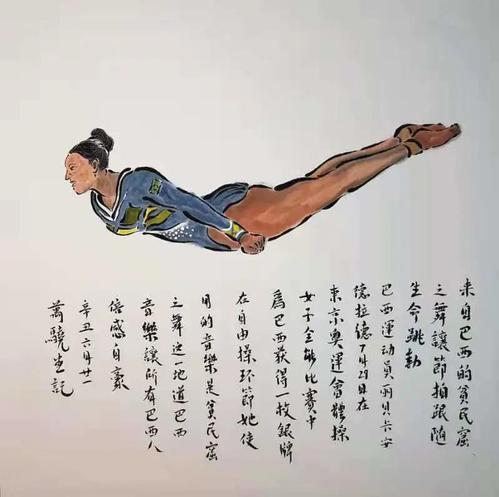 来自巴西的貧民窟
之舞讓節拍跟随
生命跳動
巴西運动員丽貝卡安
德拉德7月29日在
東京奥運會體操
女子全能比賽中
為巴西获得一枚銀牌
在自由操环節她使
用的音樂是貧民窟
之舞这一地道巴西
音樂讓所有巴西人
倍感自豪
辛丑六月廿一
萬驍生記